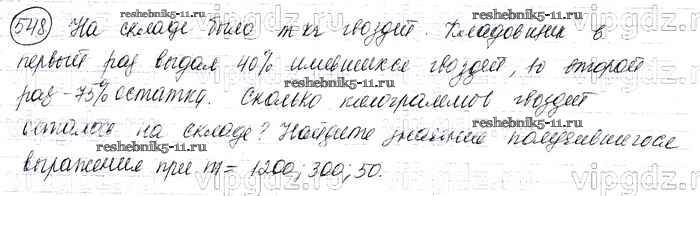 548 На складе было m кг гвоздей. Кладовщик в
первый раз выдал 40% имевшихся гвоздей, во второй
раз - 75% остатка. Сколько килограммов гвоздей
осталось на складе? Найдите значение получившегося
выражения при m = 1200; 300; 50.
reshebnik5-11.ru
reshebnik5-11.ru
reshebnik5-11.ru
reshebnik5-11.ru
vipgdz.ru
vipgdz.ru
vipgdz.ru
vipgdz.ru